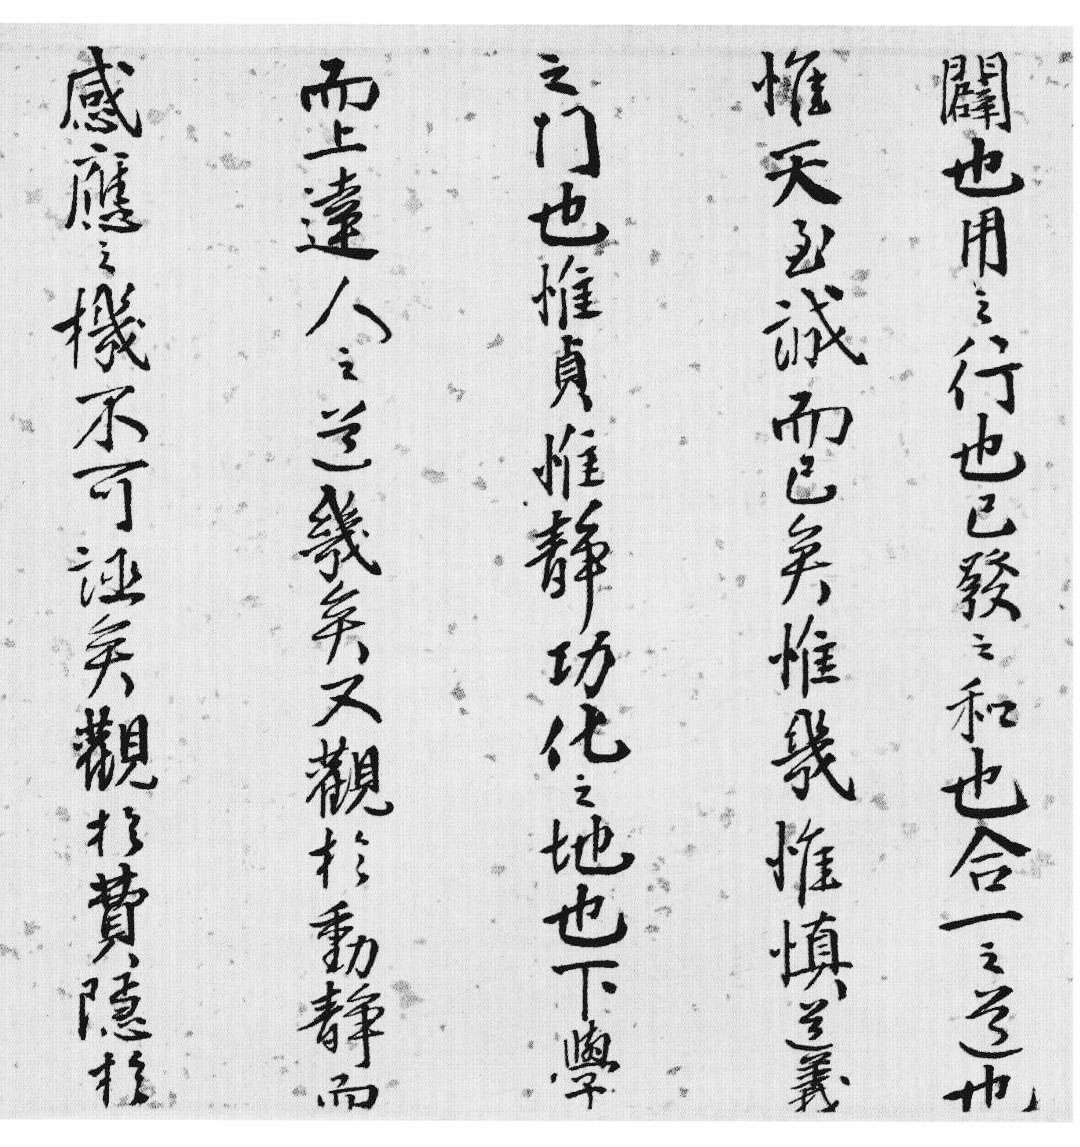 闢也用之行也已發之和也合一之道也
惟天至誠而已矣惟幾惟慎道義
之門也惟貞惟靜功化之地也下學
而上達人之道幾矣又觀於動靜而
感應之機不可誣矣觀於費隱於